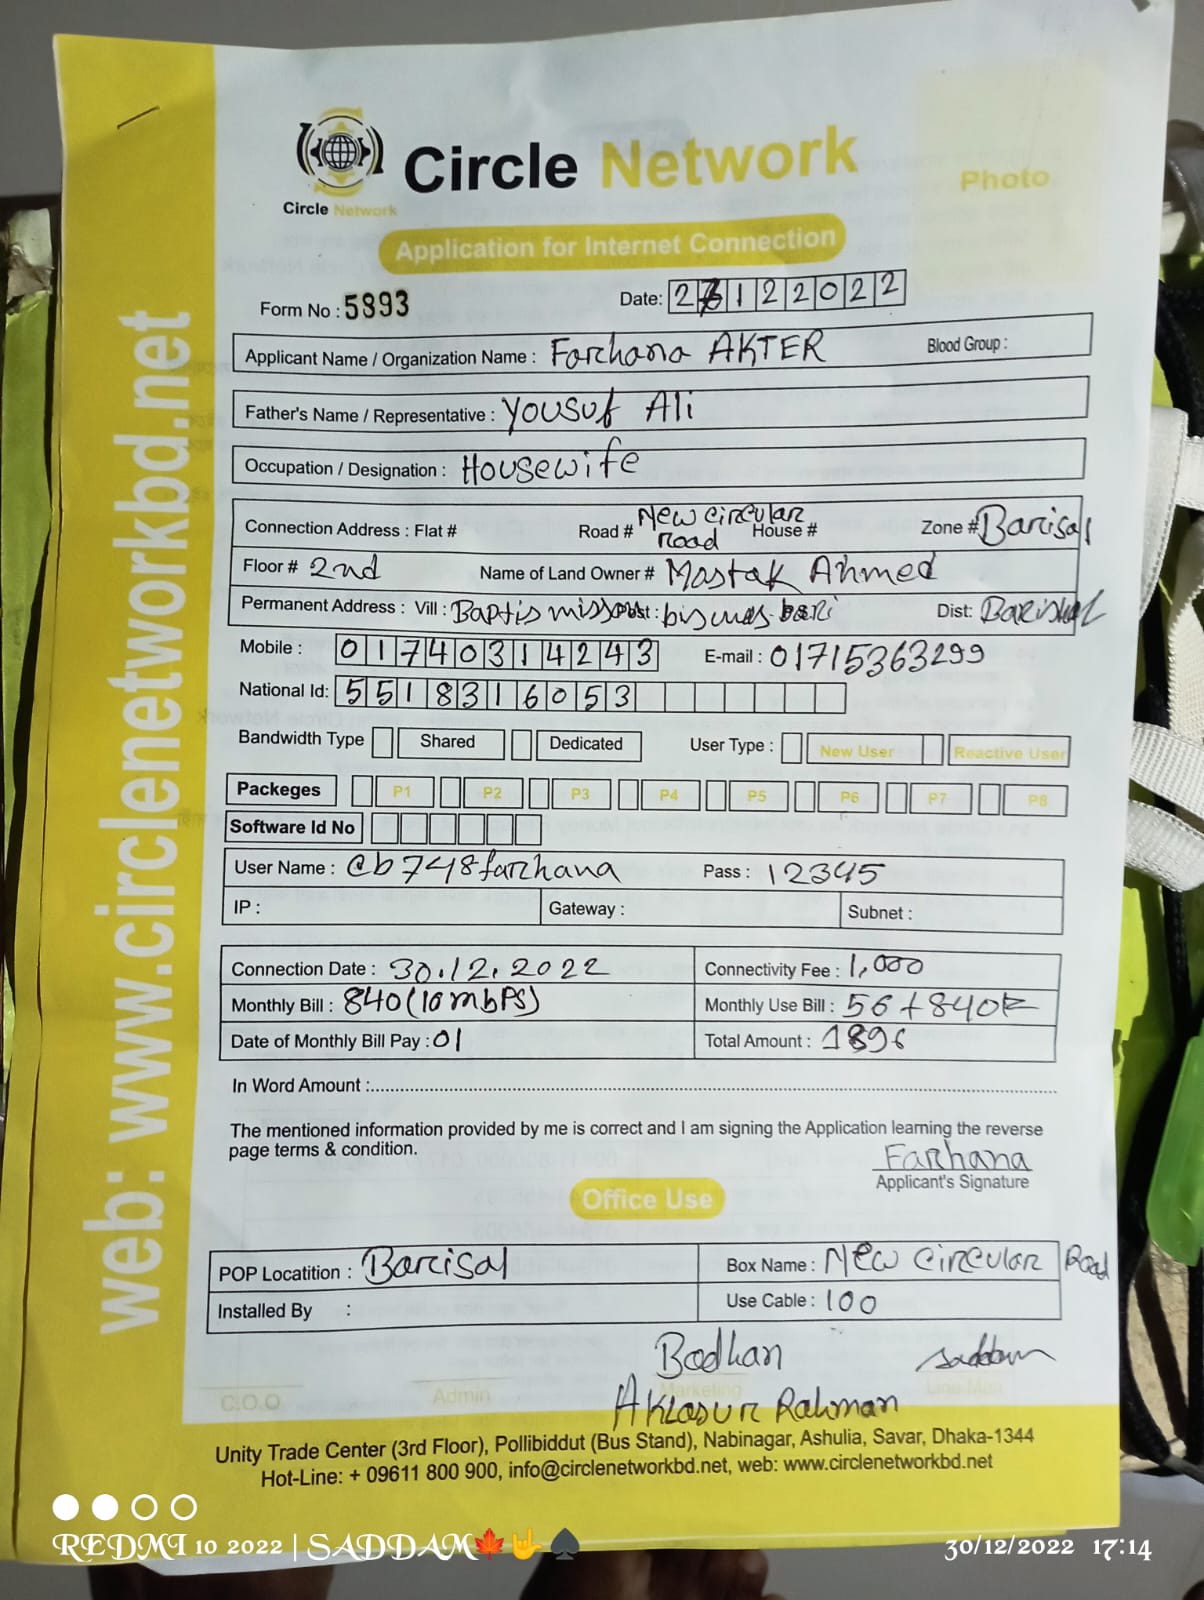 web: www.circlenetworkbd.net
Circle Network
Circle Network
Photo
Application for Internet Connection
Form No : 5893 Date: 2 1 2 2 0 2 2
Applicant Name / Organization Name : Farhana AKTER Blood Group :
Father's Name / Representative : Yousuf Ali
Occupation / Designation : Housewife
Connection Address : Flat # Road # New circular road House # Zone # Barisal
Floor # 2nd Name of Land Owner # Mostak Ahmed
Permanent Address : Vill : Baptis mission Post : Dist: Barishal
Mobile : 01740314243 E-mail : 01715363299
National Id: 5518316053
Bandwidth Type Shared Dedicated User Type : New User Reactive User
Packeges P1 P2 P3 P4 P5 P6 P7 P8
Software Id No
User Name : cb748farhana Pass : 12345
IP : Gateway : Subnet :
Connection Date : 30.12.2022 Connectivity Fee : 1,000
Monthly Bill : 840(10mbPS) Monthly Use Bill : 56+840
Date of Monthly Bill Pay : 01 Total Amount : 1896
In Word Amount :
The mentioned information provided by me is correct and I am signing the Application learning the reverse
page terms & condition.
Farhana
Applicant's Signature
Office Use
POP Locatition : Barisal Box Name : New Circular Road
Installed By : Use Cable : 100
Bodhan Saddam
C.O.O Admin Marketing Line Man
Rahman
Unity Trade Center (3rd Floor), Pollibiddut (Bus Stand), Nabinagar, Ashulia, Savar, Dhaka-1344
Hot-Line: + 09611 800 900, info@circlenetworkbd.net, web: www.circlenetworkbd.net
REDMI 10 2022 | SADDAM🍁🤟♠ 30/12/2022 17:14